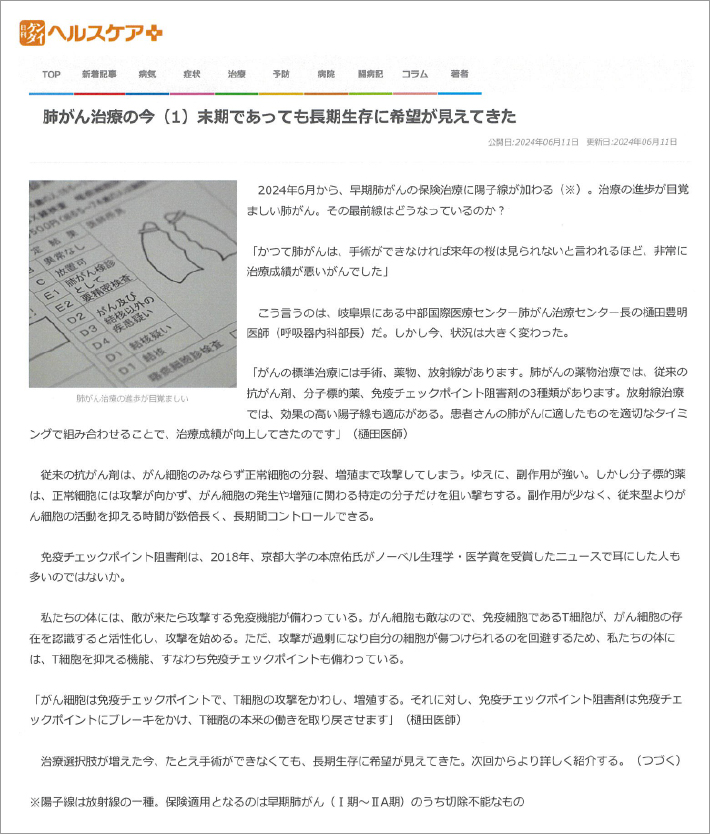 日刊
ゲンダイ
ヘルスケア+
TOP 新着記事 病気 症状 治療 予防 病院 闘病記 コラム 著者
肺がん治療の今（1）末期であっても長期生存に希望が見えてきた
公開日:2024年06月11日 更新日:2024年06月11日
定 結果
異常なし
C 放置可
E1 肺がん検診
として
E2 要精密検査
D2 がん及び
D3 結核以外の
疾患疑い
D4 結核疑い
D1 結核
喀痰細胞診検査
肺がん治療の進歩が目覚ましい
2024年6月から、早期肺がんの保険治療に陽子線が加わる（※）。治療の進歩が目覚
ましい肺がん。その最前線はどうなっているのか？
「かつて肺がんは、手術ができなければ来年の桜は見られないと言われるほど、非常に
治療成績が悪いがんでした」
こう言うのは、岐阜県にある中部国際医療センター肺がん治療センター長の樋田豊明
医師（呼吸器内科部長）だ。しかし今、状況は大きく変わった。
「がんの標準治療には手術、薬物、放射線があります。肺がんの薬物治療では、従来の
抗がん剤、分子標的薬、免疫チェックポイント阻害剤の3種類があります。放射線治療
では、効果の高い陽子線も適応がある。患者さんの肺がんに適したものを適切なタイミ
ングで組み合わせることで、治療成績が向上してきたのです」（樋田医師）
従来の抗がん剤は、がん細胞のみならず正常細胞の分裂、増殖まで攻撃してしまう。ゆえに、副作用が強い。しかし分子標的薬
は、正常細胞には攻撃が向かず、がん細胞の発生や増殖に関わる特定の分子だけを狙い撃ちする。副作用が少なく、従来型よりが
ん細胞の活動を抑える時間が数倍長く、長期間コントロールできる。
免疫チェックポイント阻害剤は、2018年、京都大学の本庶佑氏がノーベル生理学・医学賞を受賞したニュースで耳にした人も
多いのではないか。
私たちの体には、敵が来たら攻撃する免疫機能が備わっている。がん細胞も敵なので、免疫細胞であるT細胞が、がん細胞の存
在を認識すると活性化し、攻撃を始める。ただ、攻撃が過剰になり自分の細胞が傷つけられるのを回避するため、私たちの体に
は、T細胞を抑える機能、すなわち免疫チェックポイントも備わっている。
「がん細胞は免疫チェックポイントで、T細胞の攻撃をかわし、増殖する。それに対し、免疫チェックポイント阻害剤は免疫チェ
ックポイントにブレーキをかけ、T細胞の本来の働きを取り戻させます」（樋田医師）
治療選択肢が増えた今、たとえ手術ができなくても、長期生存に希望が見えてきた。次回からより詳しく紹介する。（つづく）
※陽子線は放射線の一種。保険適用となるのは早期肺がん（Ⅰ期～ⅡA期）のうち切除不能なもの